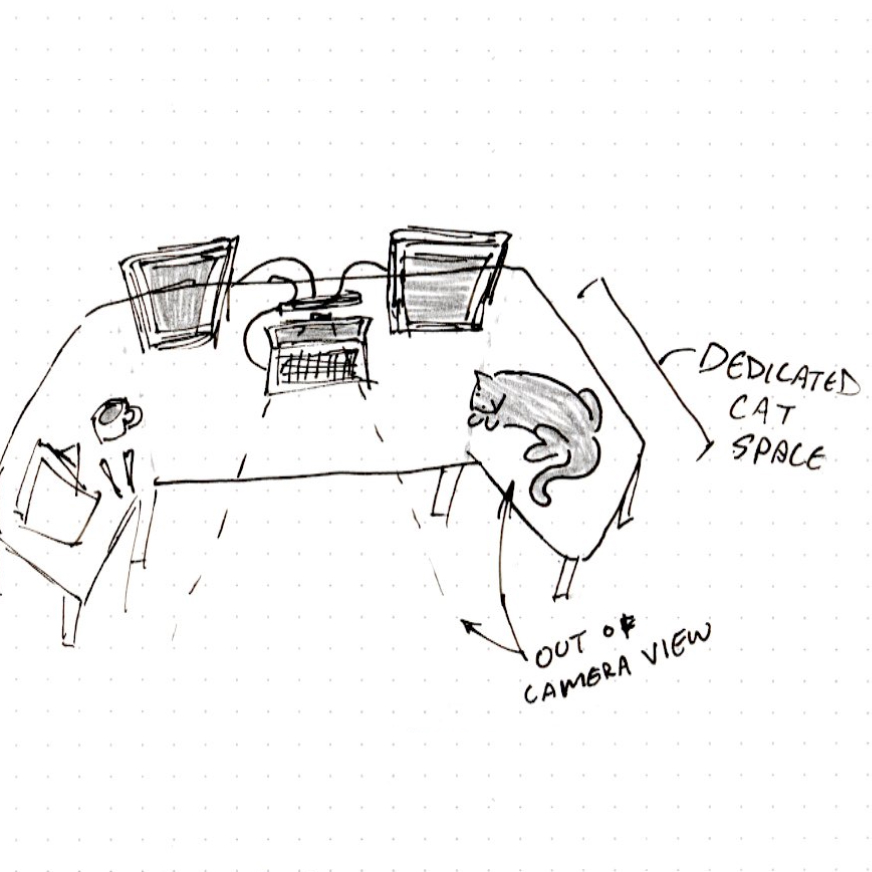 DEDICATED
CAT
SPACE
OUT OF
CAMERA VIEW